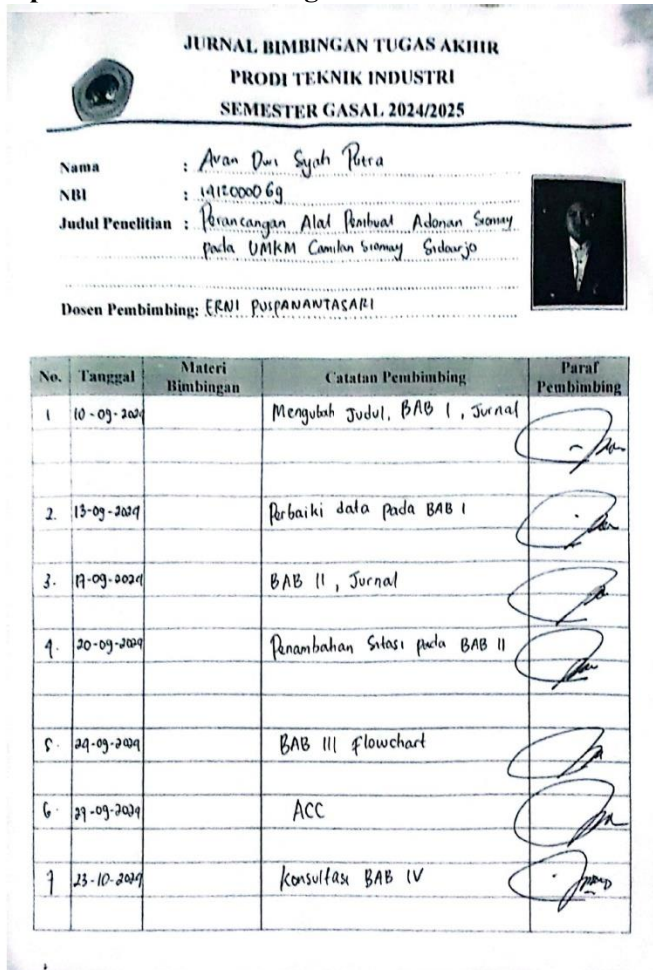 JURNAL BIMBINGAN TUGAS AKHIR
PRODI TEKNIK INDUSTRI
SEMESTER GASAL 2024/2025
Nama : Avan Dwi Syah Putra
NBI :
Judul Penelitian : Perancangan Alat Pembuat Adonan Siomay
pada UMKM Camilan Siomay Sidoarjo
Dosen Pembimbing: ERNI PUSPANANTASARI
No. Tanggal Materi Bimbingan Catatan Pembimbing Paraf Pembimbing
1 10-09-2024 Mengubah Judul, BAB I, Jurnal
2. 13-09-2024 Perbaiki data pada BAB I
3. 17-09-2024 BAB II, Jurnal
4. 20-09-2024 Penambahan Sitasi pada BAB II
5. 24-09-2024 BAB III Flowchart
6. 27-09-2024 ACC
7 23-10-2024 Konsultasi BAB IV